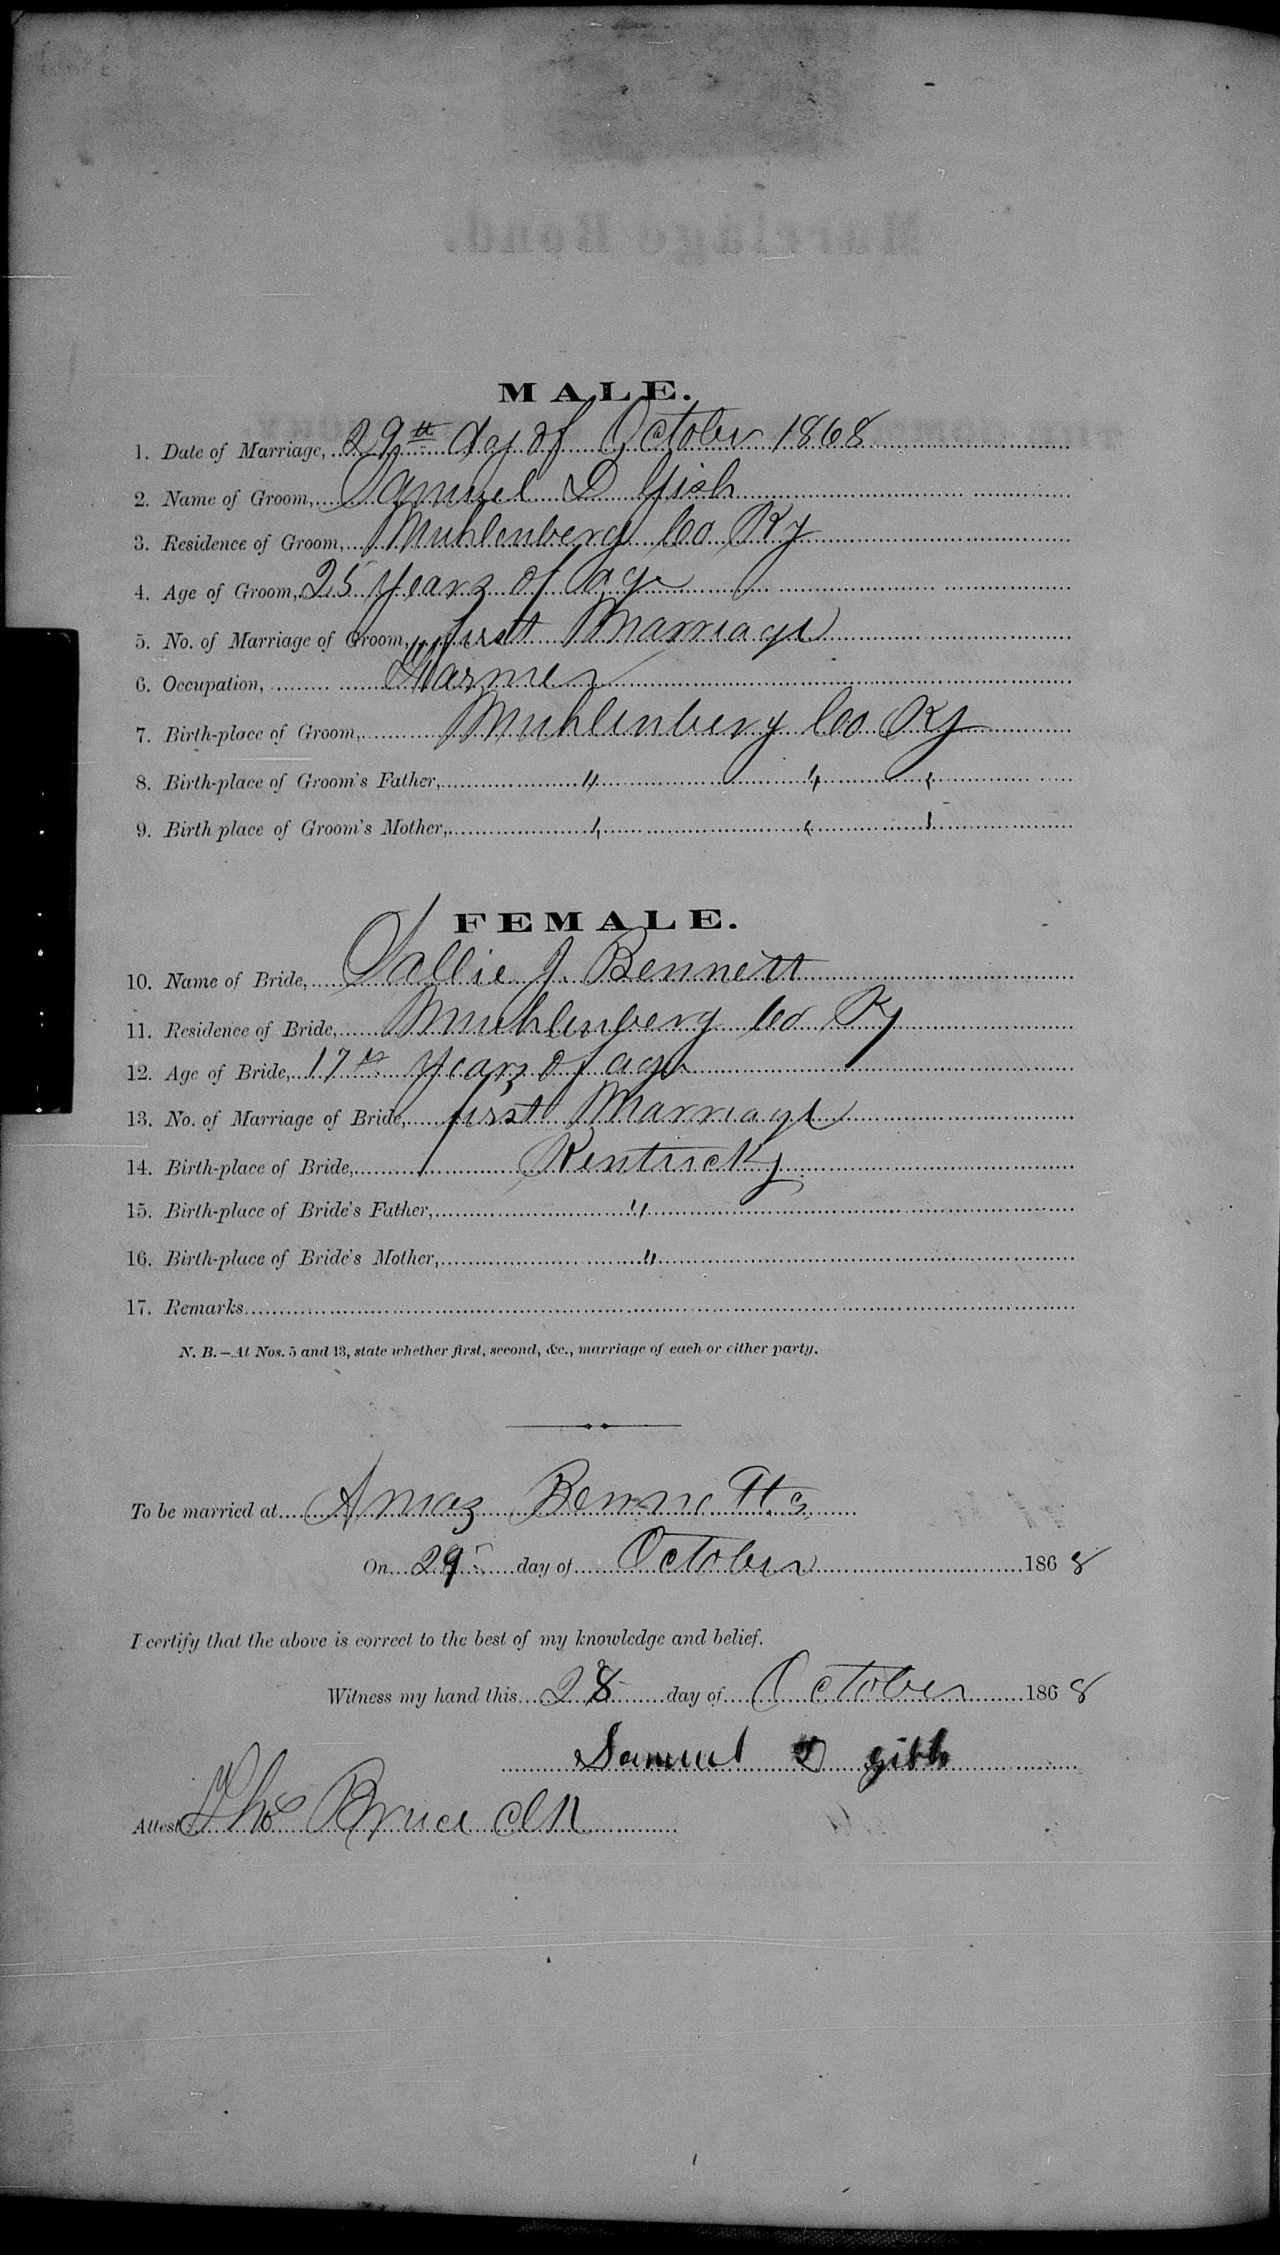 MALE.
1. Date of Marriage, 29th day of October 1868
2. Name of Groom, Samuel D Gish
3. Residence of Groom, Muhlenberg Co Ky
4. Age of Groom, 25 years of age
5. No. of Marriage of Groom, first Marriage
6. Occupation, Farmer
7. Birth-place of Groom, Muhlenberg Co Ky
8. Birth-place of Groom's Father, " " "
9. Birth place of Groom's Mother, " " "
FEMALE.
10. Name of Bride, Sallie J. Bennett
11. Residence of Bride, Muhlenberg Co Ky
12. Age of Bride, 17th years of age
13. No. of Marriage of Bride, first Marriage
14. Birth-place of Bride, Kentucky
15. Birth-place of Bride's Father, "
16. Birth-place of Bride's Mother, "
17. Remarks
N. B.—At Nos. 5 and 13, state whether first, second, &c., marriage of each or either party.
To be married at Amaz Bennetts
On 29 day of October 1868
I certify that the above is correct to the best of my knowledge and belief.
Witness my hand this 28 day of October 1868
Samuel D Gish
Attest Tho Bruce Clk